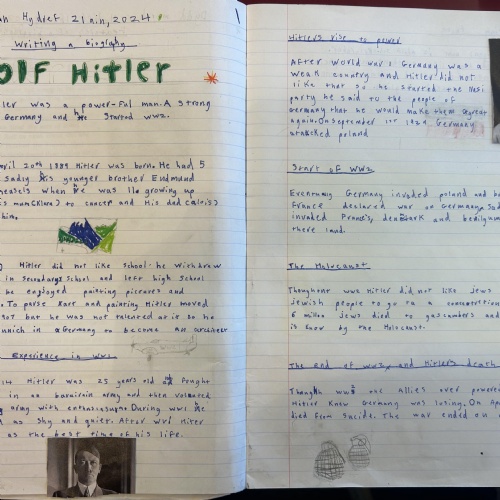 Hydref 21ain, 2024
Writing a biography
OLF Hitler
ler was a power-ful man. A strong
Germany and he started WW2.
pril 20th 1889 Hitler was born. He had 5
sadly his younger brother Eudmund
measels when he was 11. growing up
mam (Klara) to cancer and His dad (alois)
him.
Hitler did not like school. he withdrew
in secondary school and left high school
be enjoyed painting pictures and
To parse Eart and painting Hitler moved
907 but he was not talented at it so he
unich in Germany to become
Experience in WW1
14 Hitler was 25 years old and fought
in an bavairain army and then
army with During WW1 he
as Shy and quiet. After WW1 Hitler
as the best time of his life.
Hitlers rise to power
After World War 1 Germany was a
weak country and Hitler did not
like that so he started the Nasi
party he said to the people of
Germany that he would make them great
again. On september 1st 1929 Germany
attacked poland
Start of WW2
Germany invaded poland and
France declared war on Germany.
invaded France,
there land.
The Holocaust
WW2 Hitler did not like jews
jewish people to go to a
6 million jews died to gas chambers and
is know by the Holocaust.
The end of WW2 and Hitlers death
one allies over powered
Hitler knew Germany was losing. On Ap
died from Suicide. The war ended on